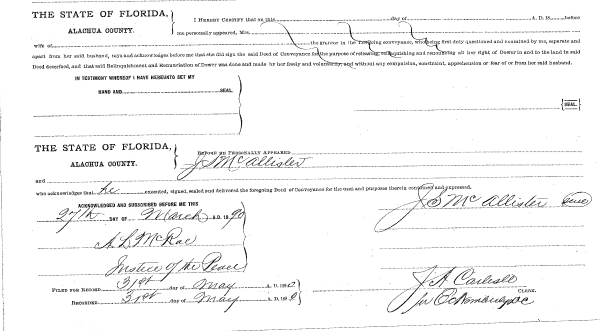 THE STATE OF FLORIDA,
ALACHUA COUNTY.
I HEREBY CERTIFY that on this day of A. D. 18 before
me personally appeared, Mrs.
wife of the grantor in the foregoing conveyance, who being first duly questioned and examined by me, separate and
apart from her said husband, says and acknowledges before me that she did sign the said Deed of Conveyance for the purpose of releasing, relinquishing and renouncing all her right of Dower in and to the land in said
Deed described, and that said Relinquishment and Renunciation of Dower was done and made by her freely and voluntarily, and without any compulsion, constraint, apprehension or fear of or from her said husband.
IN TESTIMONY WHEREOF I HAVE HEREUNTO SET MY
HAND AND SEAL
SEAL
THE STATE OF FLORIDA,
ALACHUA COUNTY.
BEFORE ME PERSONALLY APPEARED
J S McAllister
and
who acknowledges that he executed, signed, sealed and delivered the foregoing Deed of Conveyance for the uses and purposes therein contained and expressed.
ACKNOWLEDGED AND SUBSCRIBED BEFORE ME THIS
27th DAY OF March A.D. 1890
J S McAllister Seal
A. L. McRae
Justice of the Peace
FILED FOR RECORD 31st day of May A. D. 18
RECORDED 31st day of May A. D. 18
J. A. Carlisle CLERK.